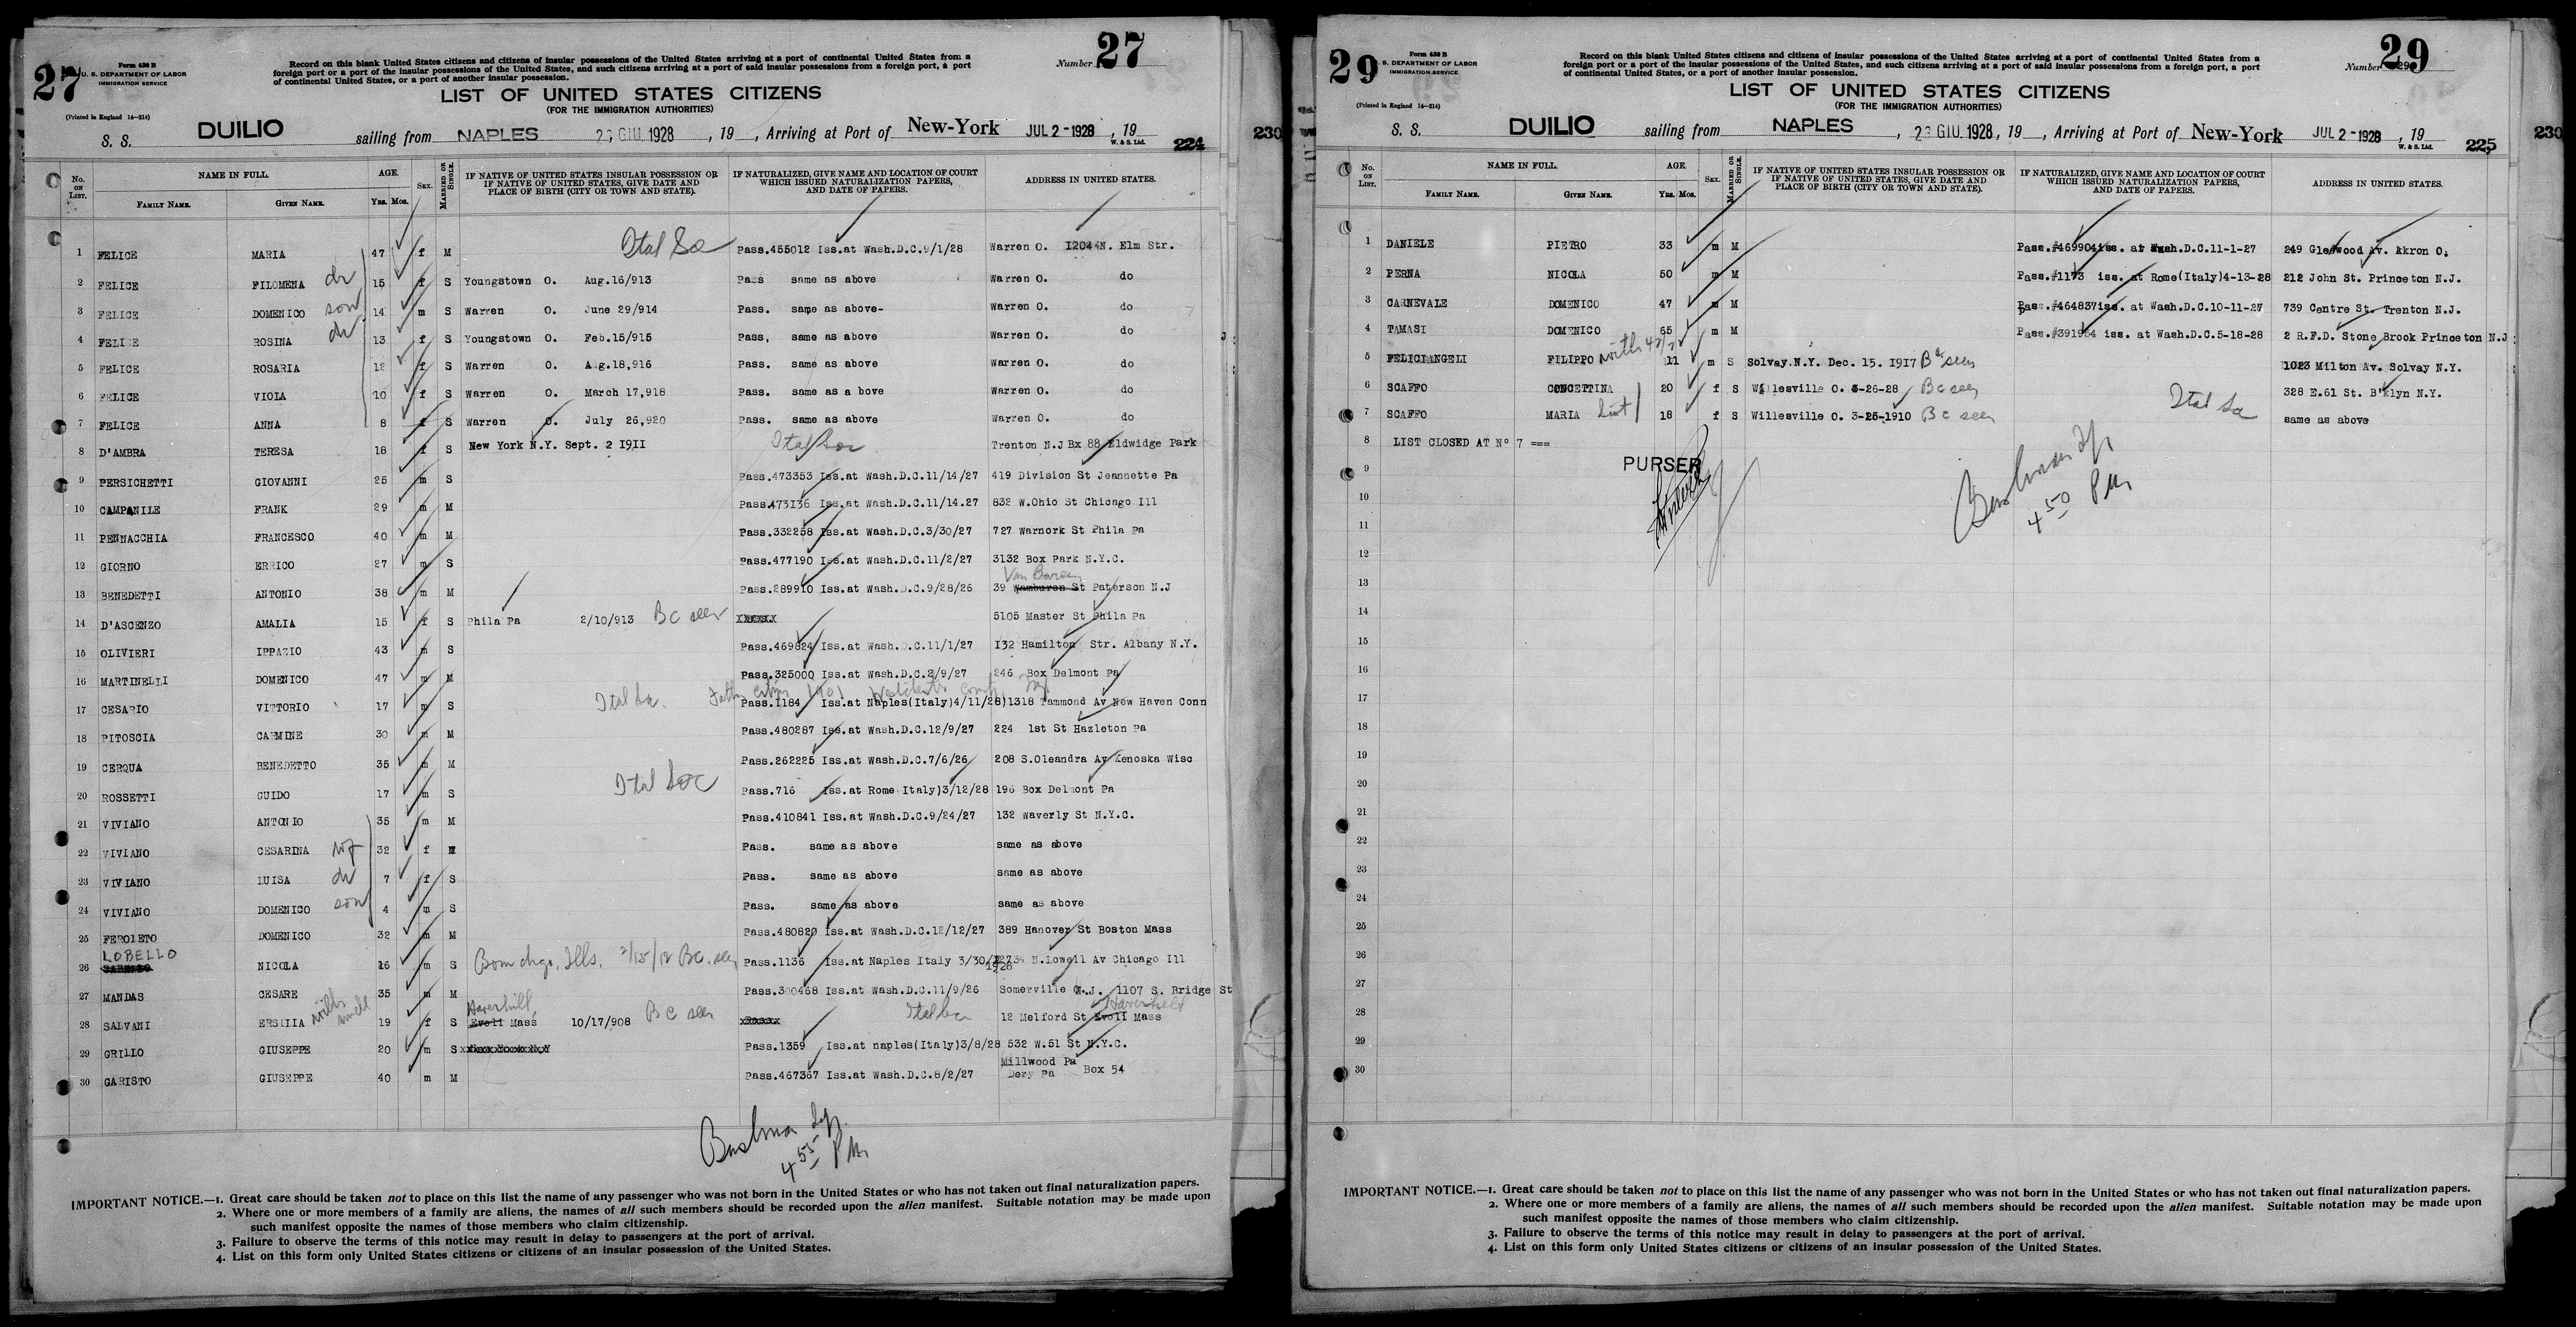 27
Form 630 B
U. S. DEPARTMENT OF LABOR
IMMIGRATION SERVICE
(Printed in England 14—214)
Record on this blank United States citizens and citizens of insular possessions of the United States arriving at a port of continental United States from a
foreign port or a port of the insular possessions of the United States, and such citizens arriving at a port of said insular possessions from a foreign port, a port
of continental United States, or a port of another insular possession.
Number 27
LIST OF UNITED STATES CITIZENS
(FOR THE IMMIGRATION AUTHORITIES)
S. S. DUILIO sailing from NAPLES 23 GIU. 1928 , 19 , Arriving at Port of New-York JUL 2-1928 , 19
W. & S. Ltd.
224
No. on List. NAME IN FULL. AGE. Sex. Married or Single. IF NATIVE OF UNITED STATES INSULAR POSSESSION OR IF NATIVE OF UNITED STATES, GIVE DATE AND PLACE OF BIRTH (CITY OR TOWN AND STATE). IF NATURALIZED, GIVE NAME AND LOCATION OF COURT WHICH ISSUED NATURALIZATION PAPERS, AND DATE OF PAPERS. ADDRESS IN UNITED STATES.
Family Name. Given Name. Yrs. Mos.
1 FELICE MARIA 47 f M Ital Soc Pass.455012 Iss.at Wash.D.C.9/1/28 Warren O. I2044N. Elm Str.
2 FELICE FILOMENA dr 15 f S Youngstown O. Aug.16/913 Pass same as above Warren O. do
3 FELICE DOMENICO son 14 m S Warren O. June 29/914 Pass. same as above- Warren O. do
4 FELICE ROSINA dr 13 f S Youngstown O. Feb.15/915 Pass, same as above Warren O. do
5 FELICE ROSARIA 12 f S Warren O. Aug.18,916 Pass. same as above Warren O. do
6 FELICE VIOLA 10 f S Warren O. March 17,918 Pass. same as a bove Warren O. do
7 FELICE ANNA 8 f S Warren O. July 26,920 Pass. same as above Warren O. do
8 D'AMBRA TERESA 18 f S New York N.Y. Sept. 2 I9II Ital Soc Trenton N.J Bx 88 Eldwidge Park
9 PERSICHETTI GIOVANNI 25 m S Pass.473353 Iss.at Wash.D.C.11/14/27 419 Division St Jeannette Pa
10 CAMPANILE FRANK 29 m M Pass.473I36 Iss.at Wash.D.C.11/14.27 832 W.Ohio St Chicago Ill
11 PENNACCHIA FRANCESCO 40 m M Pass.332258 Iss.at Wash.D.C.3/30/27 727 Warnork St Phila Pa
12 GIORNO ERRICO 27 m S Pass.477190 Iss.at Wash.D.C.11/2/27 3132 Box Park N.Y.C.
Van Buren
13 BENEDETTI ANTONIO 38 m M Pass.289910 Iss.at Wash.D.C.9/28/26 39 Wamburen St Paterson N.J
14 D'ASCENZO AMALIA 15 f S Phila Pa 2/10/913 BC seen 5105 Master St Phila Pa
15 OLIVIERI IPPAZIO 43 m S Pass.469824 Iss.at Wash.D.C.11/1/27 I32 Hamilton Str. Albany N.Y.
16 MARTINELLI DOMENICO 47 m M Pass.325000 Iss.at Wash.D.C.2/9/27 246 Box Delmont Pa
17 CESARIO VITTORIO 17 m S Ital Soc. Pass.1184 Iss.at Naples(Italy)4/11/28)1318 Tammond Av New Haven Conn
18 PITOSCIA CARMINE 30 m M Pass.480287 Iss.at Wash.D.C.12/9/27 224 1st St Hazleton Pa
19 CERQUA BENEDETTO 35 m M Pass.262225 Iss.at Wash.D.C.7/6/26 208 S.Oleandra Av Kenoska Wisc
20 ROSSETTI GUIDO 17 m S Ital Soc Pass.716 Iss.at Rome Italy)3/12/28 196 Box Delmont Pa
21 VIVIANO ANTONIO 35 m M Pass.410841 Iss.at Wash.D.C.9/24/27 132 Waverly St N.Y.C.
22 VIVIANO CESARINA wf 32 f M Pass. same as above same as above
23 VIVIANO LUISA dr 7 f S Pass. same as above same as above
24 VIVIANO DOMENICO son 4 m S Pass. same as above same as above
25 FEROLETO DOMENICO 32 m M Pass.480820 Iss.at Wash.D.C.12/12/27 389 Hanover St Boston Mass
LOBELLO
26 NICOLA 16 m S Born chgo, Ills. 2/15/12 BC. seen Pass.1136 Iss.at Naples Italy 3/30/ 1928 N.Lowell Av Chicago Ill
27 MANDAS CESARE 35 m M Pass.300468 Iss.at Wash.D.C.11/9/26 Somerville N.J. 1107 S. Bridge St
Haverhill Haverhill
28 SALVANI ERSILIA with uncle 19 f S Evoli Mass 10/17/908 BC seen Ital Soc 12 Melford St Evoli Mass
29 GRILLO GIUSEPPE 20 m S Pass.1359 Iss.at naples(Italy)3/8/28 532 W.51 St N.Y.C.
30 GARISTO GIUSEPPE 40 m M Pass.467367 Iss.at Wash.D.C.8/2/27 Millwood Pa Dery Pa Box 54
4 55 PM
IMPORTANT NOTICE.—1. Great care should be taken not to place on this list the name of any passenger who was not born in the United States or who has not taken out final naturalization papers.
2. Where one or more members of a family are aliens, the names of all such members should be recorded upon the alien manifest. Suitable notation may be made upon
such manifest opposite the names of those members who claim citizenship.
3. Failure to observe the terms of this notice may result in delay to passengers at the port of arrival.
4. List on this form only United States citizens or citizens of an insular possession of the United States.
230
29
Form 630 B
S. DEPARTMENT OF LABOR
IMMIGRATION SERVICE
(Printed in England 14—214)
Record on this blank United States citizens and citizens of insular possessions of the United States arriving at a port of continental United States from a
foreign port or a port of the insular possessions of the United States, and such citizens arriving at a port of said insular possessions from a foreign port, a port
of continental United States, or a port of another insular possession.
Number 29
LIST OF UNITED STATES CITIZENS
(FOR THE IMMIGRATION AUTHORITIES)
S. S. DUILIO sailing from NAPLES , 23 GIU. 1928 , 19 , Arriving at Port of New-York JUL 2-1928 , 19
W. & S. Ltd.
225
230
No. on List. NAME IN FULL. AGE. Sex. Married or Single. IF NATIVE OF UNITED STATES INSULAR POSSESSION OR IF NATIVE OF UNITED STATES, GIVE DATE AND PLACE OF BIRTH (CITY OR TOWN AND STATE). IF NATURALIZED, GIVE NAME AND LOCATION OF COURT WHICH ISSUED NATURALIZATION PAPERS, AND DATE OF PAPERS. ADDRESS IN UNITED STATES.
Family Name. Given Name. Yrs. Mos.
1 DANIELE PIETRO 33 m M Pass.#469904iss. at Wash.D.C.11-1-27 249 Glenwood Av. Akron O.
2 PERNA NICOLA 50 m M Pass.#1173 iss. at Rome(Italy)4-13-28 212 John St. Princeton N.J.
3 CARNEVALE DOMENICO 47 m M Pass.#464837iss. at Wash.D.C.10-11-27 739 Centre St. Trenton N.J.
4 TAMASI DOMENICO 65 m M Pass.#391954 iss. at Wash.D.C.5-18-28 2 R.F.D. Stone Brook Princeton N.J
5 FELICIANGELI FILIPPO 11 m S Solvay.N.Y. Dec. 15. I9I7 BC seen 1023 Milton Av. Solvay N.Y.
6 SCAFFO CONCETTINA 20 f S Willesville O. 3-26-28 BC seen Ital Soc 328 E.61 St. B'klyn N.Y.
7 SCAFFO MARIA sist 18 f S Willesville O. 3-25-1910 BC seen same as above
8 LIST CLOSED AT Nº 7 ===
PURSER
9
10
4 50 PM
11
12
13
14
15
16
17
18
19
20
21
22
23
24
25
26
27
28
29
30
IMPORTANT NOTICE.—1. Great care should be taken not to place on this list the name of any passenger who was not born in the United States or who has not taken out final naturalization papers.
2. Where one or more members of a family are aliens, the names of all such members should be recorded upon the alien manifest. Suitable notation may be made upon
such manifest opposite the names of those members who claim citizenship.
3. Failure to observe the terms of this notice may result in delay to passengers at the port of arrival.
4. List on this form only United States citizens or citizens of an insular possession of the United States.